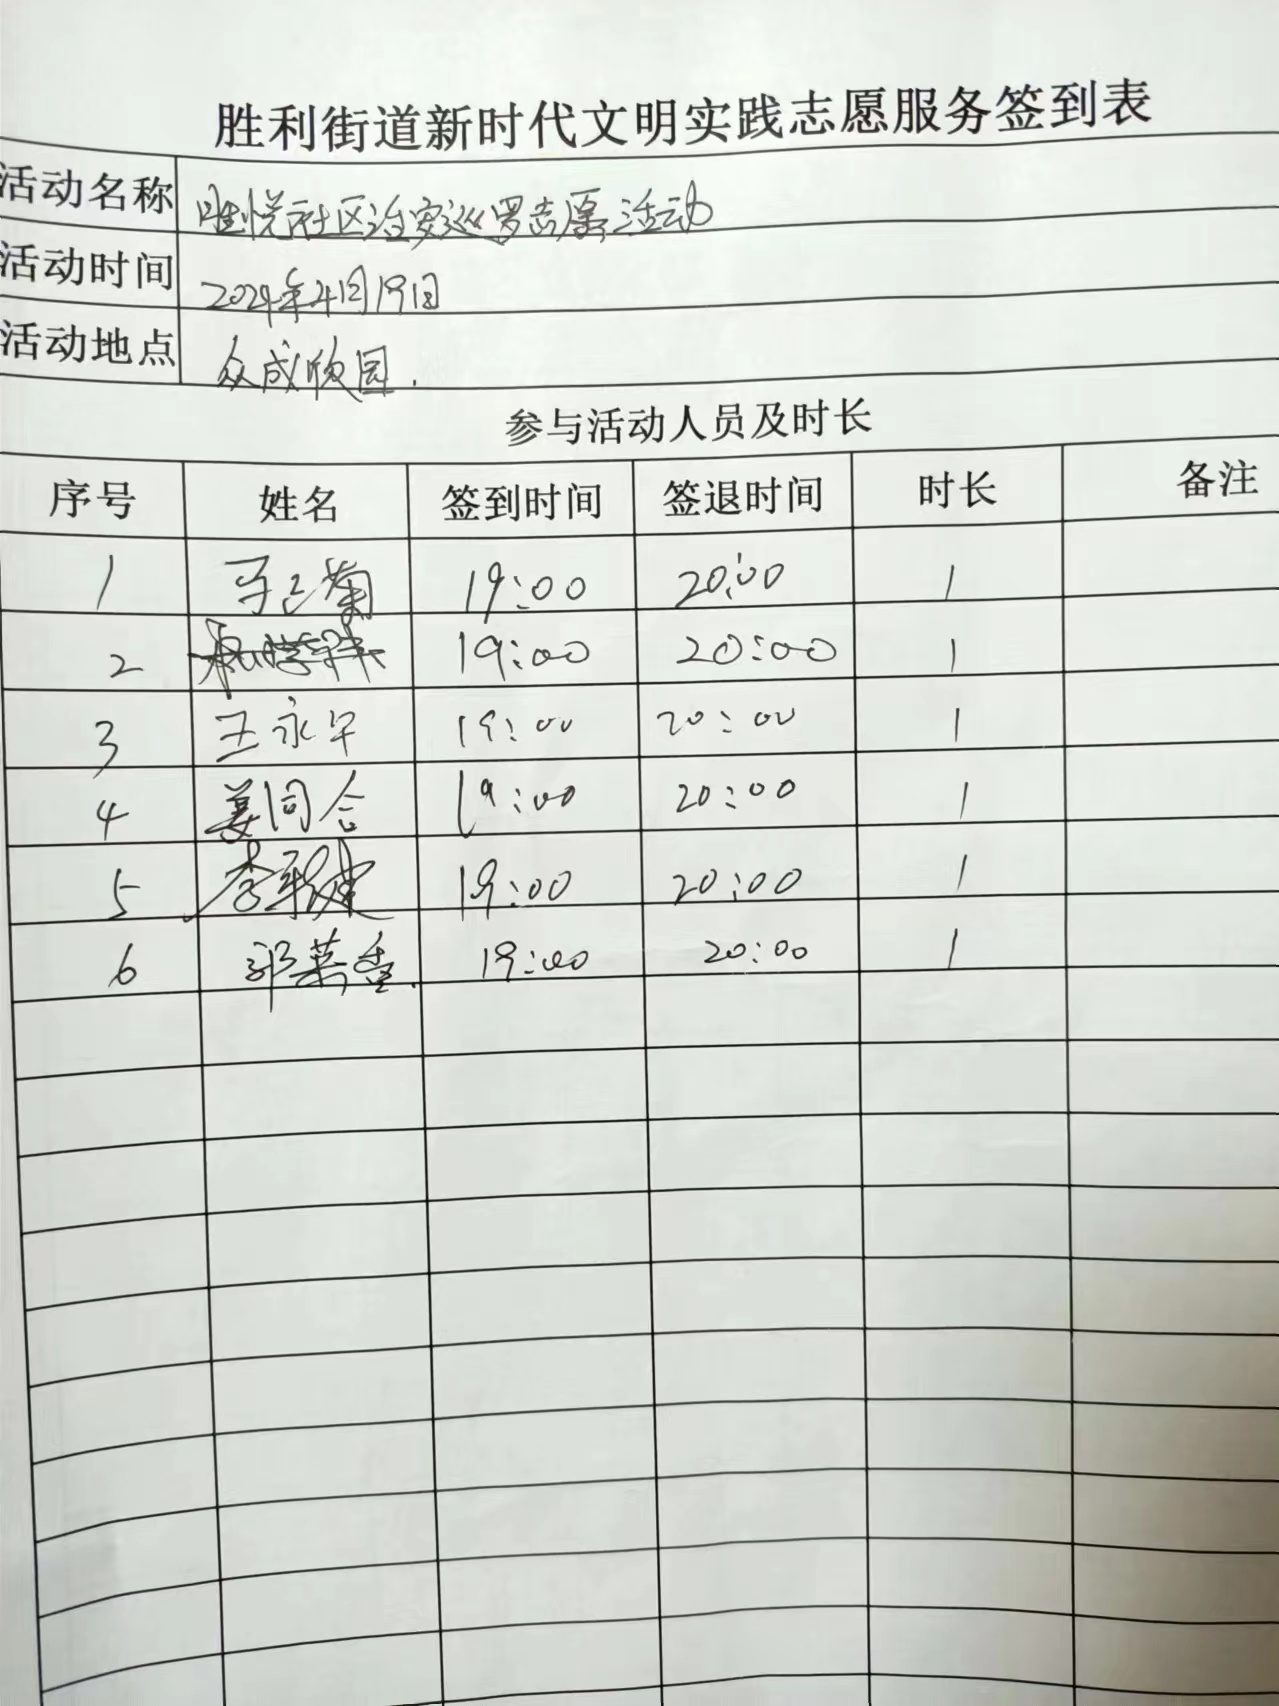 胜利街道新时代文明实践志愿服务签到表
活动名称 胜悦社区治安巡罗志愿活动
活动时间 2024年4月19日
活动地点 众成欣园.
参与活动人员及时长
序号 姓名 签到时间 签退时间 时长 备注
1 19:00 20:00 1
2 19:00 20:00 1
3 王永军 19:00 20:00 1
4 姜同合 19:00 20:00 1
5 19:00 20:00 1
6 郭英香. 19:00 20:00 1